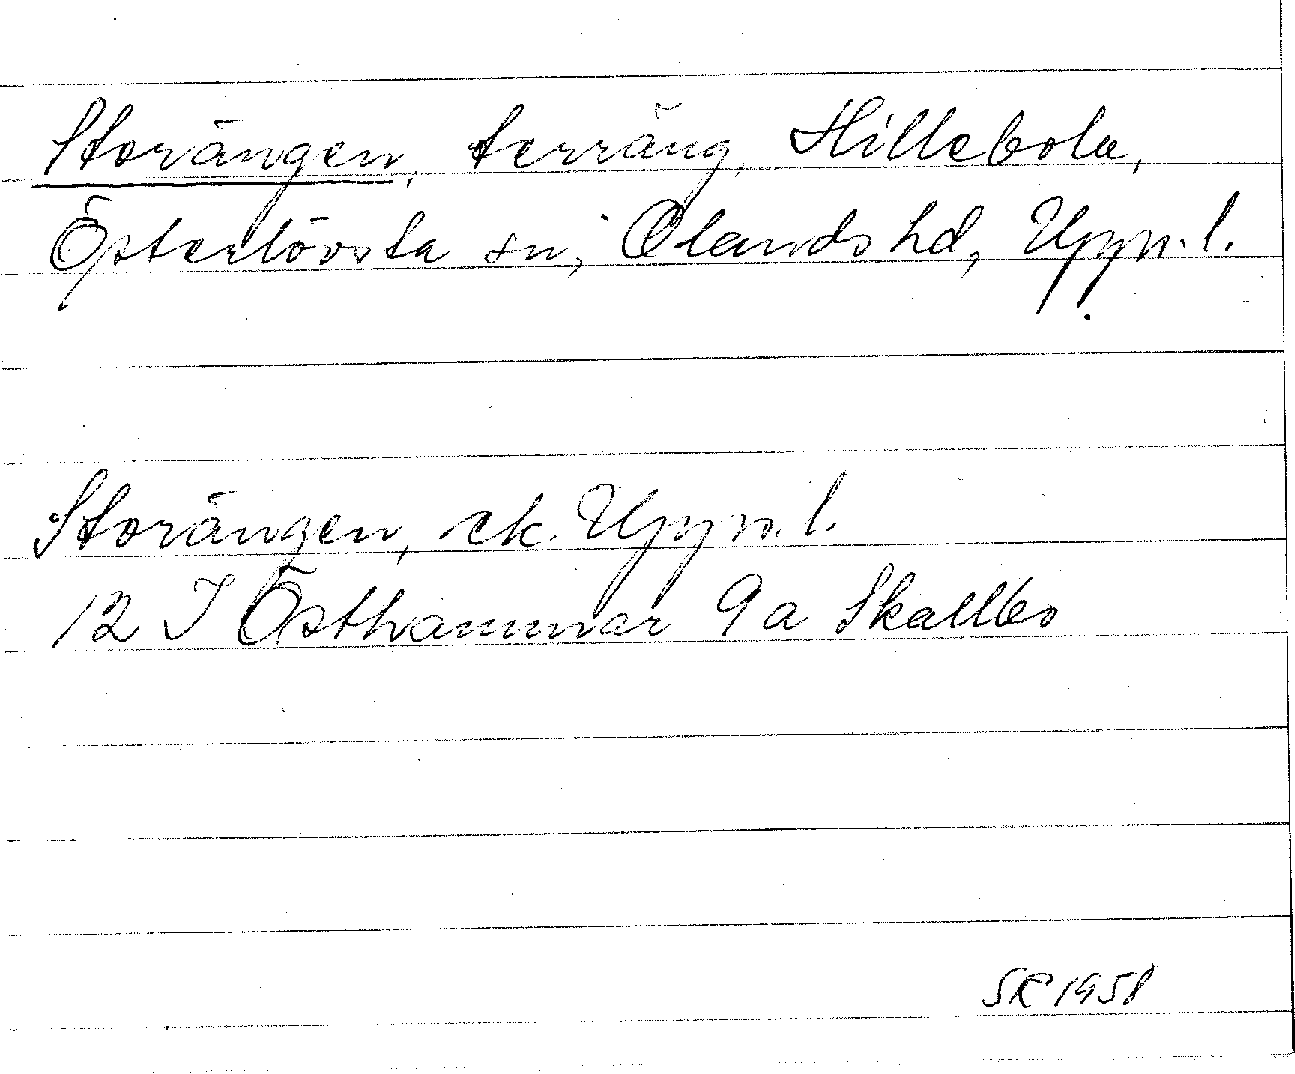 Storängen, terräng, Hillebola,
Österlövsta sn, Olands hd, Uppl.
Storängen, ek. Uppl.
12 I Östhammar 9a Skallbo
SR 1958